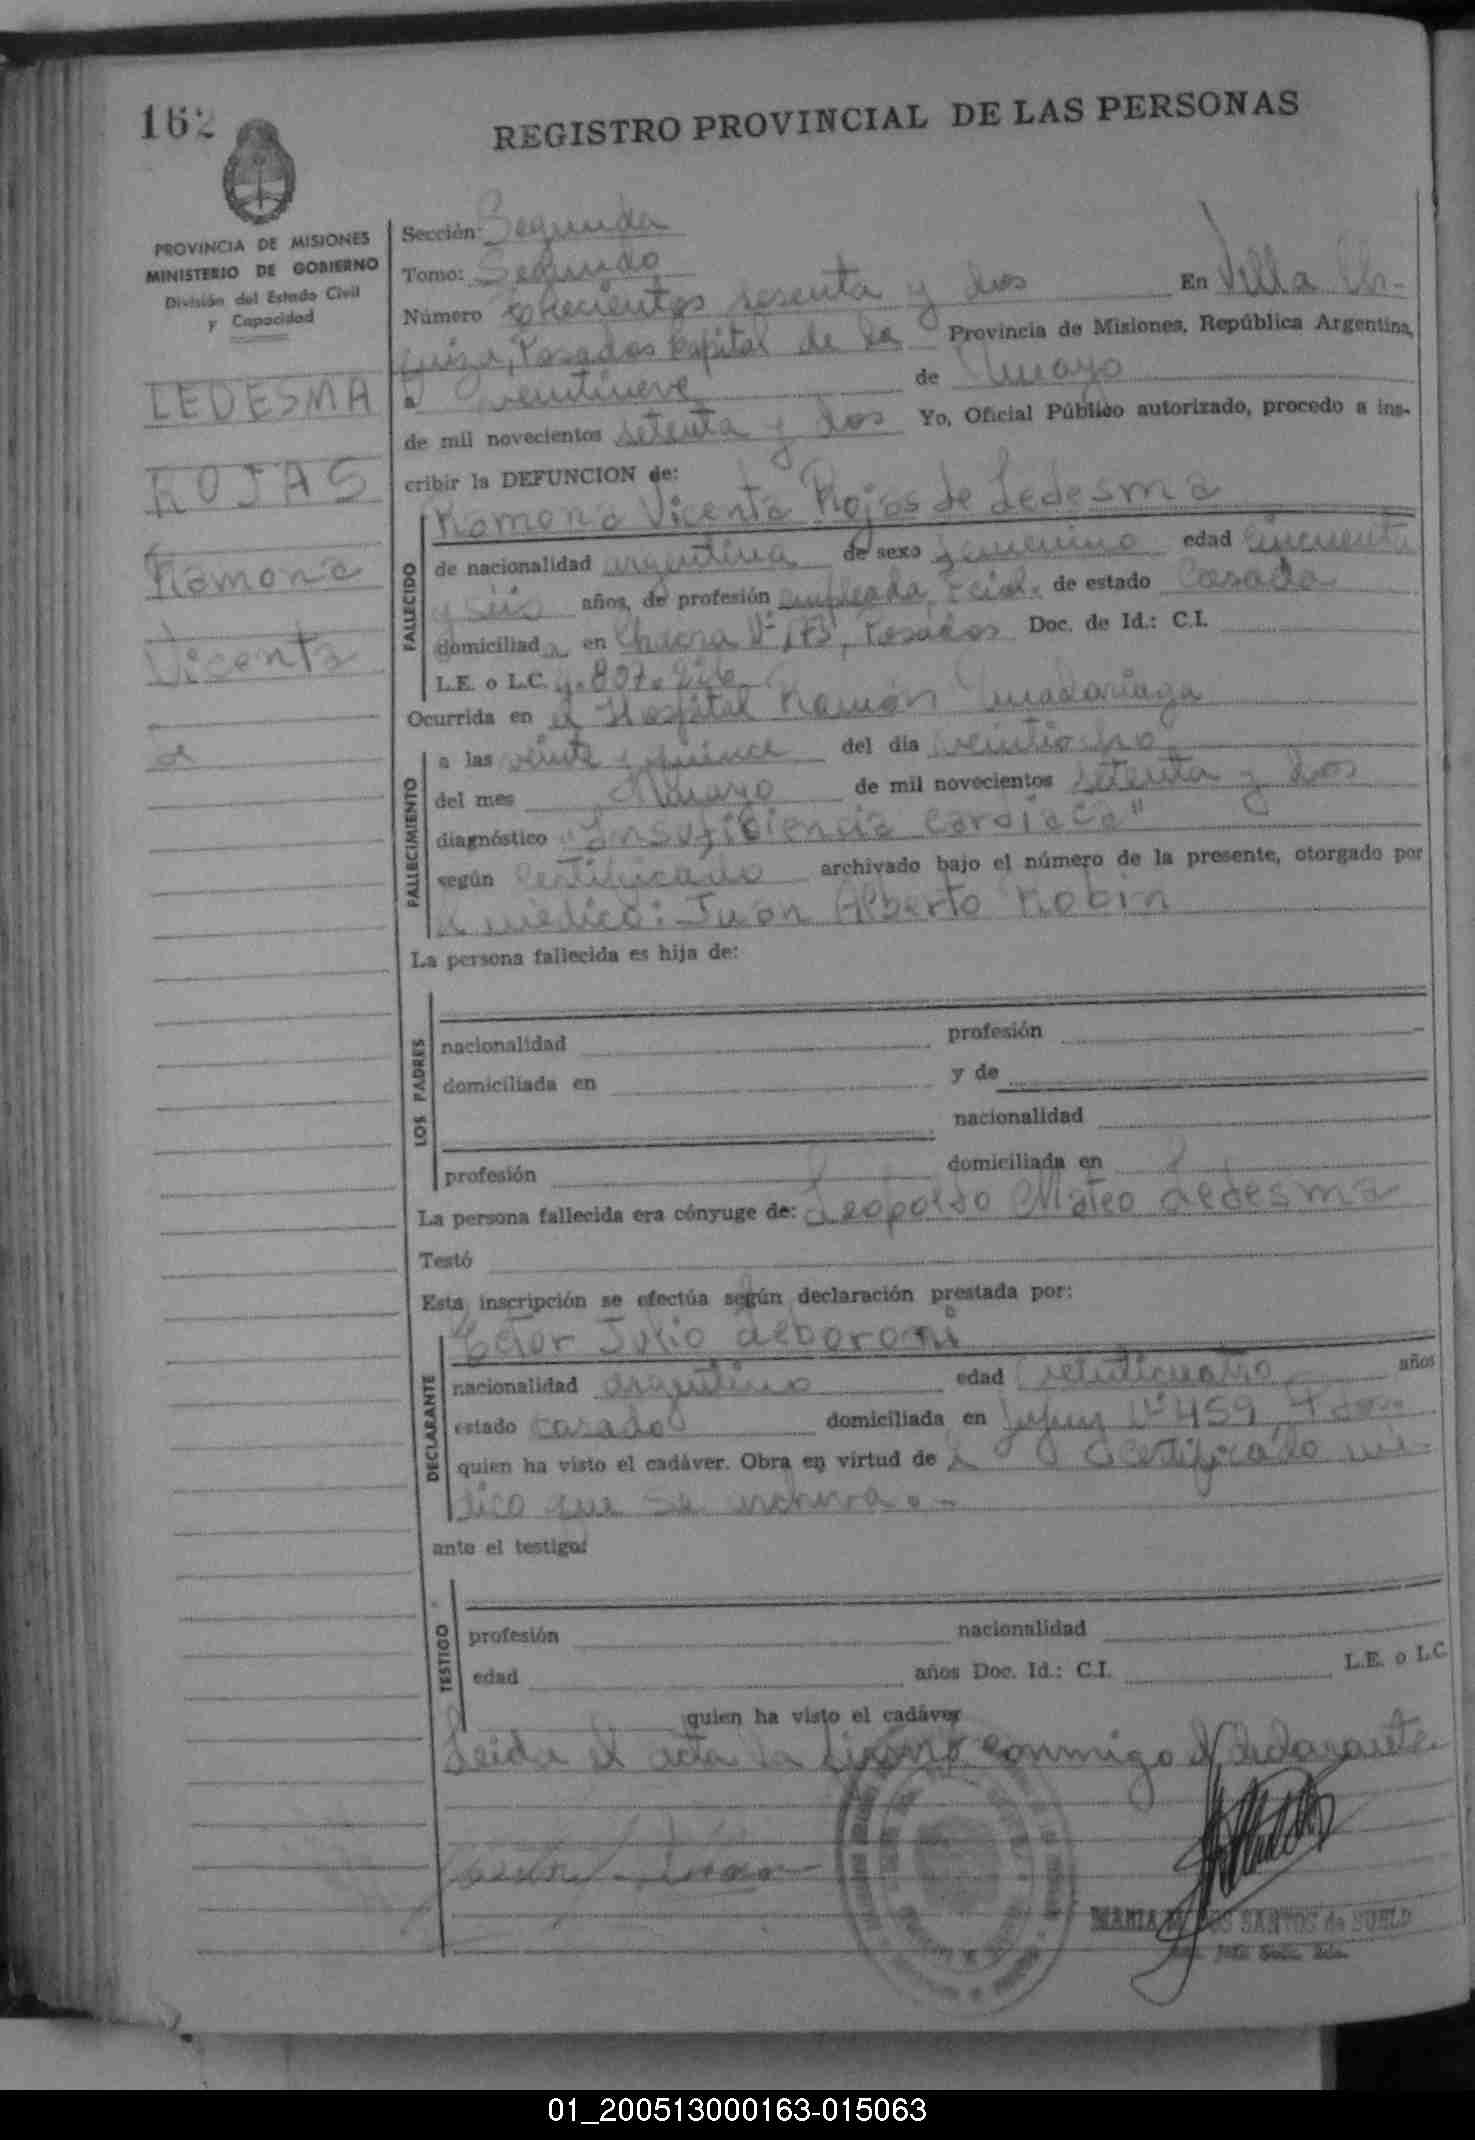 162
REGISTRO PROVINCIAL DE LAS PERSONAS
PROVINCIA DE MISIONES
MINISTERIO DE GOBIERNO
División del Estado Civil
y Capacidad
LEDESMA
ROJAS
Ramona
Vicenta
Sección: Segunda
Tomo: Segundo
Número sesenta y dos En Villa Ur-
quiza, Posadas Capital de la Provincia de Misiones, República Argentina,
a veintinueve de Mayo
de mil novecientos setenta y dos Yo, Oficial Público autorizado, procedo a ins-
cribir la DEFUNCION de:
Ramona Vicenta Rojas de Ledesma
FALLECIDO
de nacionalidad argentina de sexo femenino edad cincuenta
y seis años, de profesión empleada de estado Casada
domiciliada en Chacra Posadas Doc. de Id.: C.I.
L.E. o L.C.
Ocurrida en el Hospital Ramón Madariaga
FALLECIMIENTO
a las veinte y quince del día veintiocho
del mes Mayo de mil novecientos setenta y dos
diagnóstico "Insuficiencia Cardiaca"
según Certificado archivado bajo el número de la presente, otorgado por
el médico: Juan Alberto Robin
La persona fallecida es hija de:
LOS PADRES
nacionalidad profesión
domiciliada en y de
nacionalidad
profesión domiciliada en
La persona fallecida era cónyuge de: Leopoldo Mateo Ledesma
Testó
Esta inscripción se efectúa según declaración prestada por:
DECLARANTE
Julio
nacionalidad argentino edad veinticuatro años
estado casado domiciliada en Jujuy Nº 459 Pdas.
quien ha visto el cadáver. Obra en virtud de certificado mé-
dico que se archiva.-
ante el testigo:
TESTIGO
profesión nacionalidad
edad años Doc. Id.: C.I. L.E. o L.C.
quien ha visto el cadáver
Leida el acta la firmó conmigo el declarante
MARIA SANTOS de
01_200513000163-015063